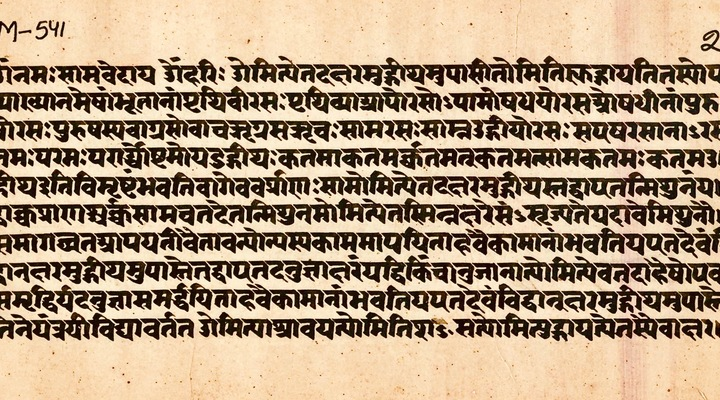 M-541
2
ॐनमःसामवेदाय ॐहरिः ॐमित्येतदक्षरमुद्गीथमुपासीतोमितिह्युद्गायतितस्योप
व्याख्यानमेषांभूतानांपृथिवीरसःपृथिव्याआपोरसोऽपामोषधयोरसओषधीनांपुरु
षोरसःपुरुषस्यवाग्रसोवाचऋग्रसऋचःसामरसःसाम्नउद्गीथोरसःसएषरसानाऽर
तमःपरमःपरार्द्ध्योष्टमोयउद्गीथःकतमाकतमर्क्कतमत्कतमत्सामकतमःकतमउ
द्गीथइतिविमृष्टंभवतिवागेवर्क्प्राणःसामोमित्येतदक्षरमुद्गीथस्तद्वाएतन्मिथुनंय
द्वाक्चप्राणश्चर्क्चसामचतदेतन्मिथुनमोमित्येतस्मिन्नक्षरेसंऽसृज्यतेयदावैमिथुनौ
समागच्छतआपयतोवैतावन्योन्यस्यकाममापयिताहवैकामानांभवतियएतदेवंवि
द्वानक्षरमुद्गीथमुपास्तेतद्वाएतदनुज्ञाक्षरंयद्धिकिंचानुजानात्योमित्येवतदाहैषोएव
समृद्धिर्यदनुज्ञासमर्द्धयिताहवैकामानांभवतियएतदेवंविद्वानक्षरमुद्गीथमुपास्ते
तेनेयंत्रयीविद्यावर्तत ॐमित्याश्रावयत्योमितिशऽसत्योमित्युद्गायत्येतस्यैवाक्षर